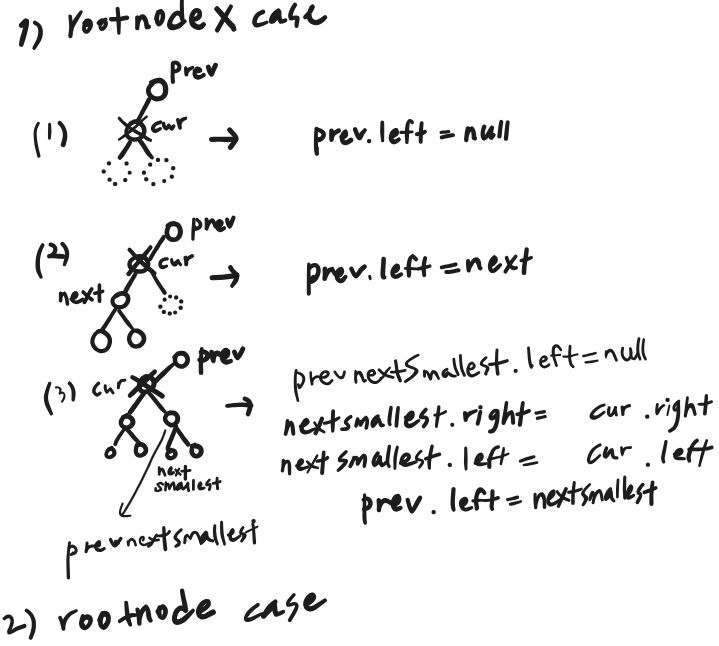 1) rootnode X case
prev
(1) cur → prev.left = null
prev
(2) cur → prev.left = next
next
prev
(3) cur → prevnextSmallest.left = null
nextsmallest.right = cur.right
nextsmallest.left = cur.left
next
smallest
prev.left = nextsmallest
prevnextsmallest
2) rootnode case